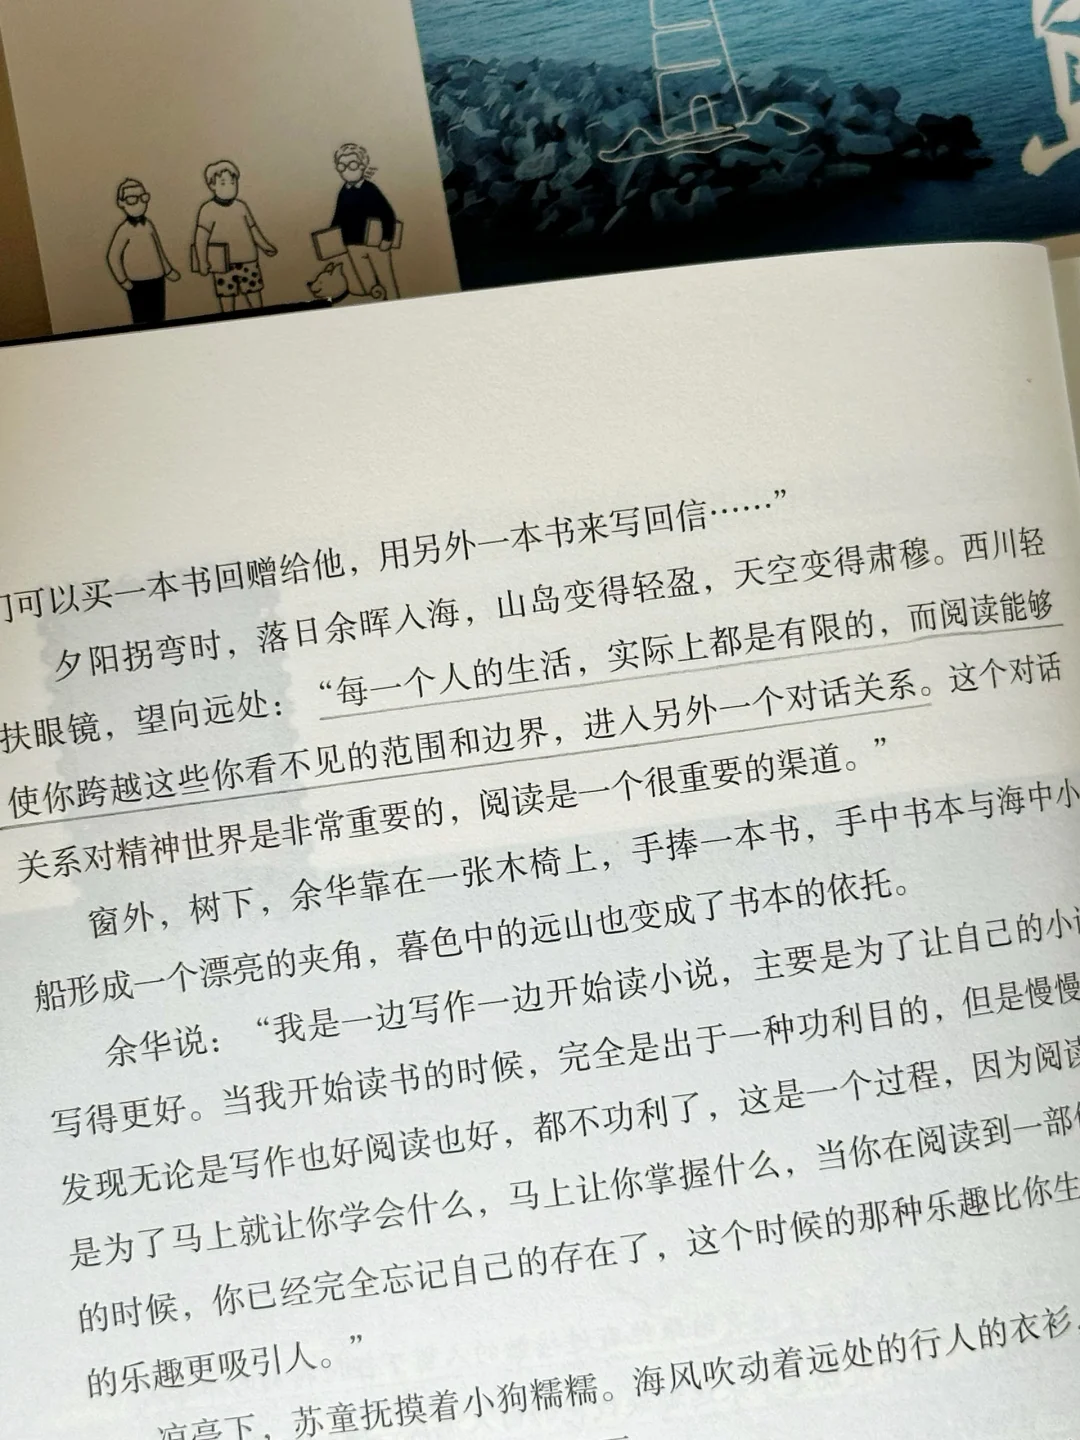 可以买一本书回赠给他，用另外一本书来写回信……”
夕阳拐弯时，落日余晖入海，山岛变得轻盈，天空变得肃穆。西川轻
扶眼镜，望向远处：“每一个人的生活，实际上都是有限的，而阅读能够
使你跨越这些你看不见的范围和边界，进入另外一个对话关系。这个对话
关系对精神世界是非常重要的，阅读是一个很重要的渠道。”
窗外，树下，余华靠在一张木椅上，手捧一本书，手中书本与海中小
船形成一个漂亮的夹角，暮色中的远山也变成了书本的依托。
余华说：“我是一边写作一边开始读小说，主要是为了让自己的小
写得更好。当我开始读书的时候，完全是出于一种功利目的，但是慢慢
发现无论是写作也好阅读也好，都不功利了，这是一个过程，因为阅读
是为了马上就让你学会什么，马上让你掌握什么，当你在阅读到一部
的时候，你已经完全忘记自己的存在了，这个时候的那种乐趣比你生
的乐趣更吸引人。”
凉亭下，苏童抚摸着小狗糯糯。海风吹动着远处的行人的衣衫，